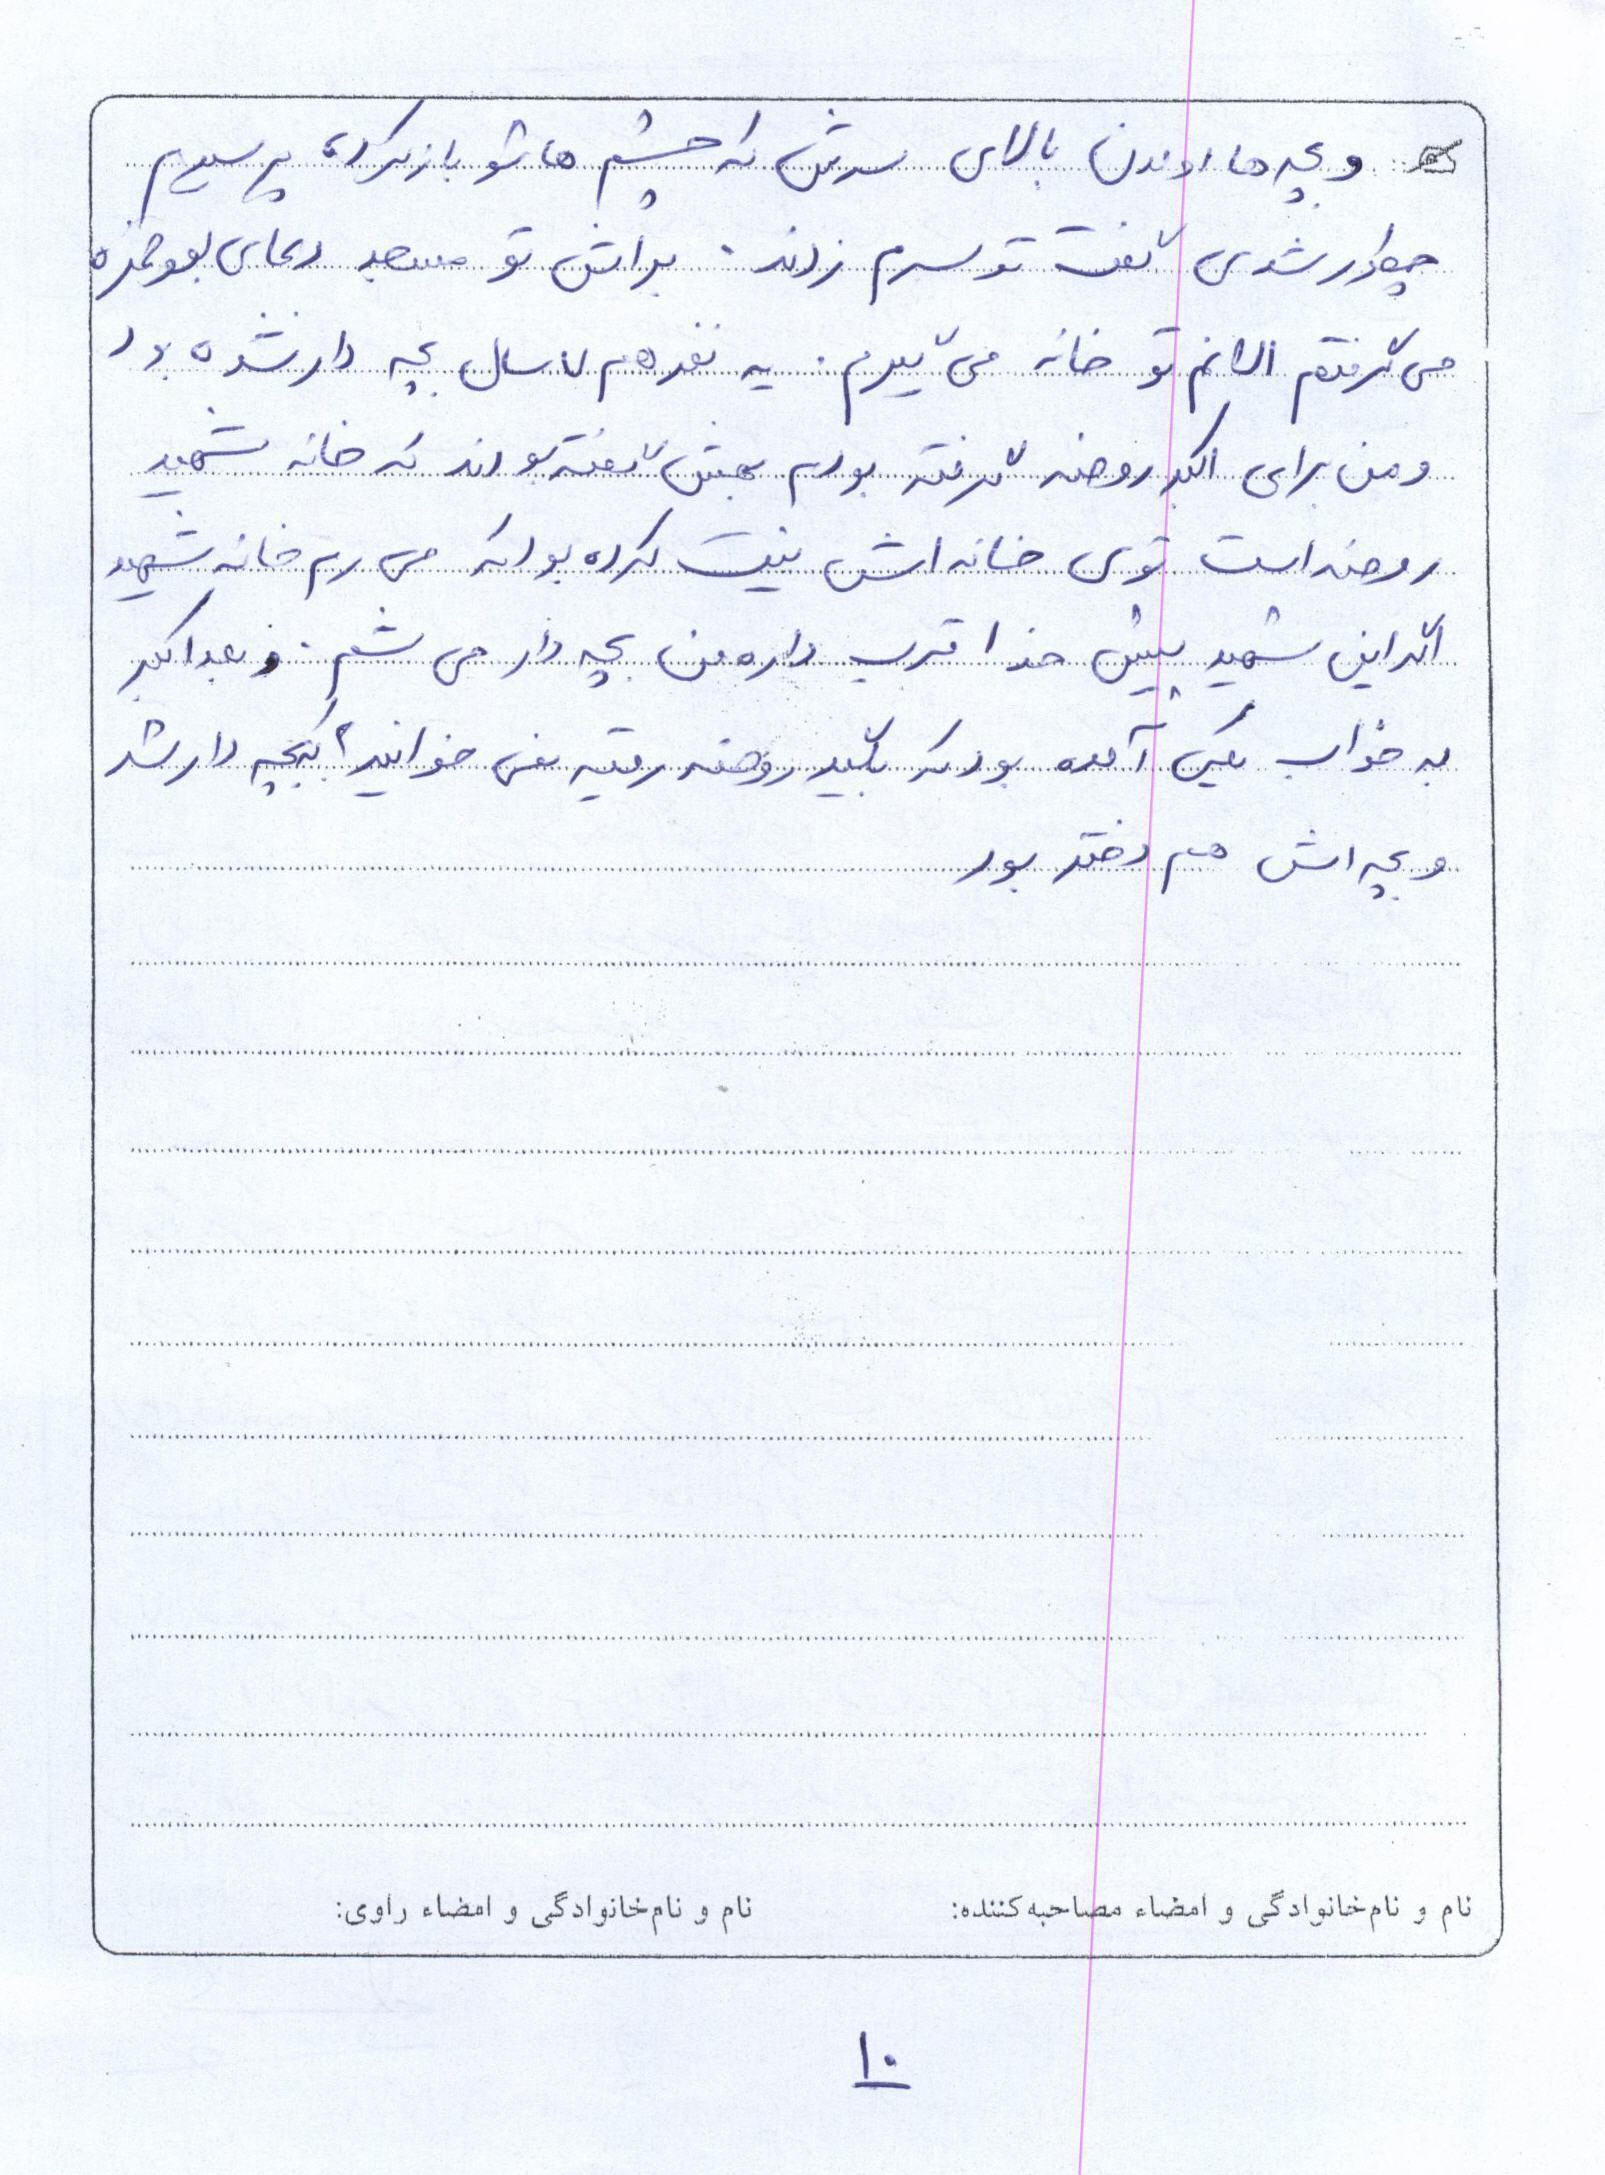 و بچه ها اومدن بالای سرش که چشم ها شو باز کرده پرسیدیم
چطور شدی گفت تو سرم زدند. براش تو مسجد دعای ابوحمزه
می گرفتم الانم تو خانه می گیرم. یه نفر هم ۷ سال بچه دار نشده بود
و من برای اکبر روضه گرفته بودم بهش گفته بودند که خانه شهید
روضه است توی خانه اش نیت کرده بود که می رم خانه شهید
اگر این شهید پیش خدا قرب داره من بچه دار می شم. و بعد اکبر
به خواب یکی آمده بود که بگید روضه رقیه می خوانید؟ که بچه دار شد
و بچه اش هم دختر بود
نام و نام‌خانوادگی و امضاء مصاحبه‌کننده: نام و نام‌خانوادگی و امضاء راوی:
۱۰